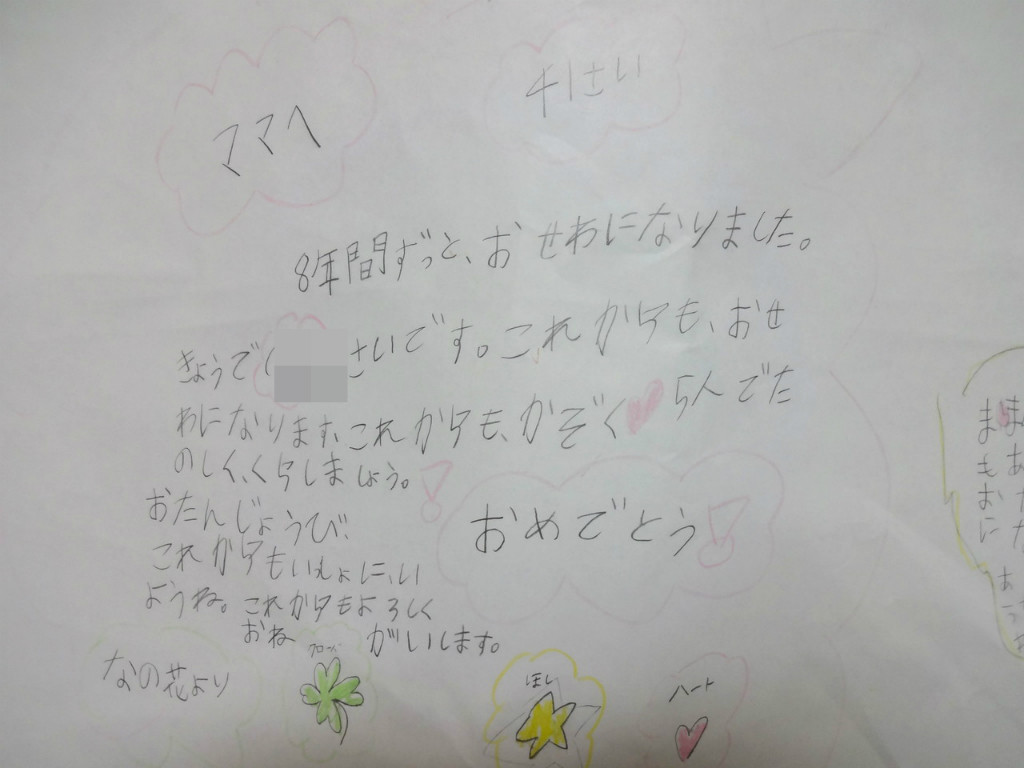 ママへ
41さい
8年間ずっと、おせわになりました。
きょうで さいです。これからも、おせ
わになります、これからも、かぞく 5人でた
のしく、くらしましょう。!
おたんじょうび
おめでとう!
これからもいしょに、い
ようね。これからもよろしく
おねがいします。
なの花より
クローバー
ほし
ハート